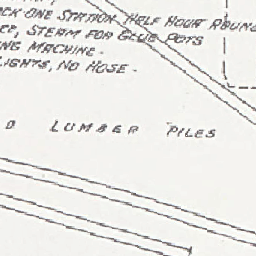 CK-ONE STATION, HALF HOUR
CE, STEAM FOR GLUE POTS
NG MACHINE.
LIGHTS, NO HOSE.
D LUMBER PILES